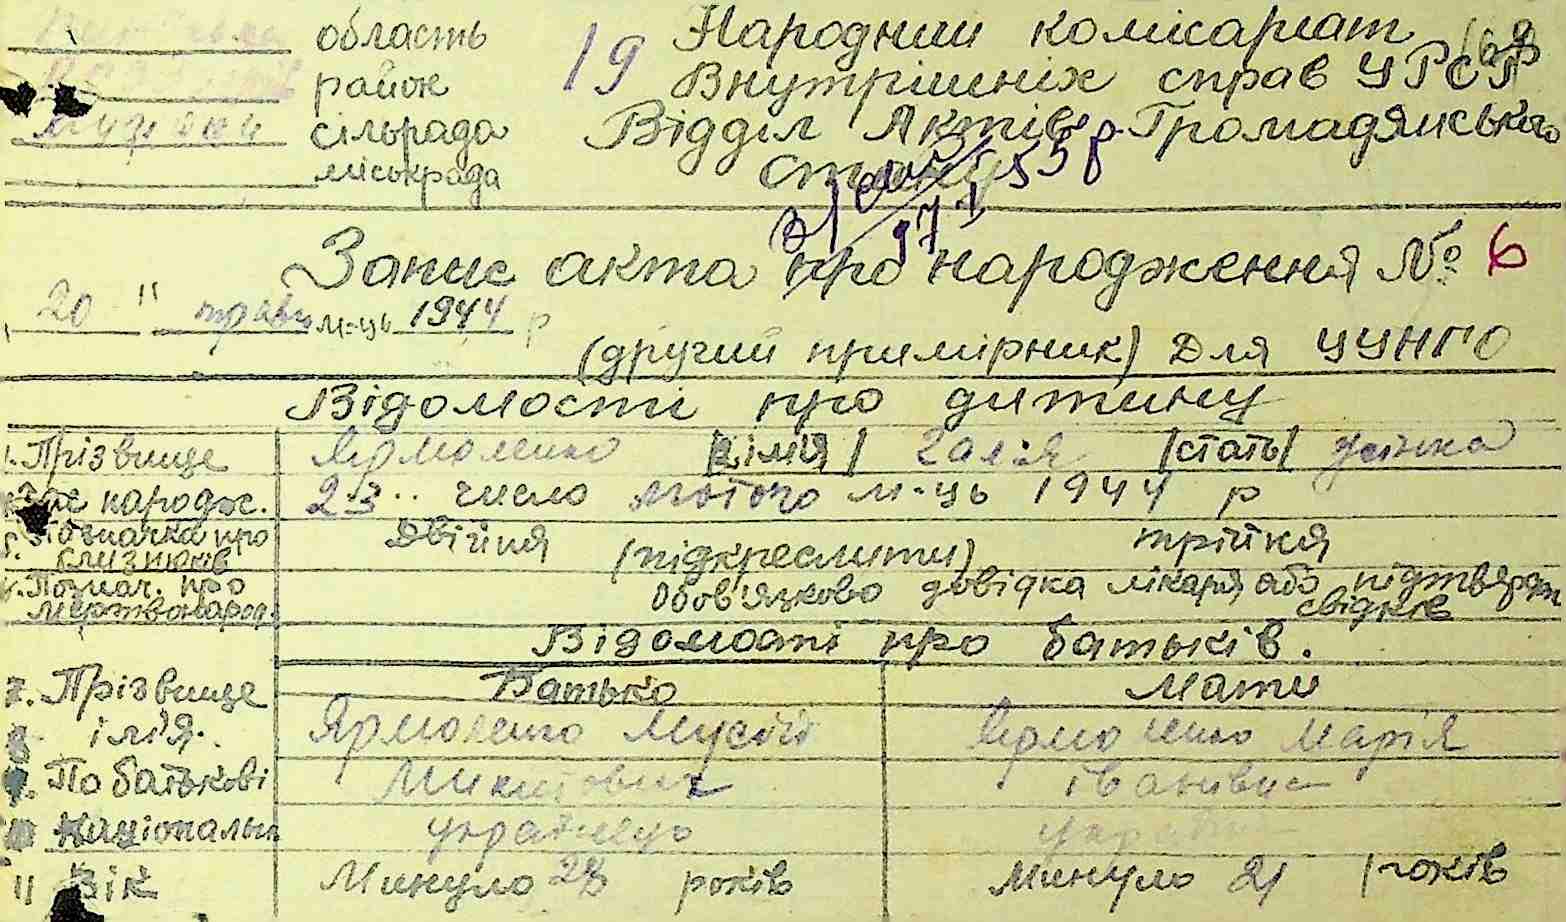 область
район
сільрада
міськрада
19 Народний комісаріат
Внутрішніх справ УРСР
Відділ Актів Громадянського
Стану
Запис акта про народження № 6
20 " м-ць 1944 р
(другий примірник) Для ЦУНГО
Відомості про дитину
1. Прізвище Ярмоленко імʼя Галія /стать/ жінка
народж. 23 число лютого м-ць 1944 р
5. Означка про близнюків Двійня (підкреслити) трійня
Познач. про мертвонарод. Обов'язково довідка лікаря або підтвердж свідків
Відомості про батьків.
Батько Мати
7. Прізвище
імʼя. Ярмоленко Мусій Ярмоленко Марія
По батькові Микитович Іванівна
Національн українець
11 Вік Минуло 28 років Минуло 21 років